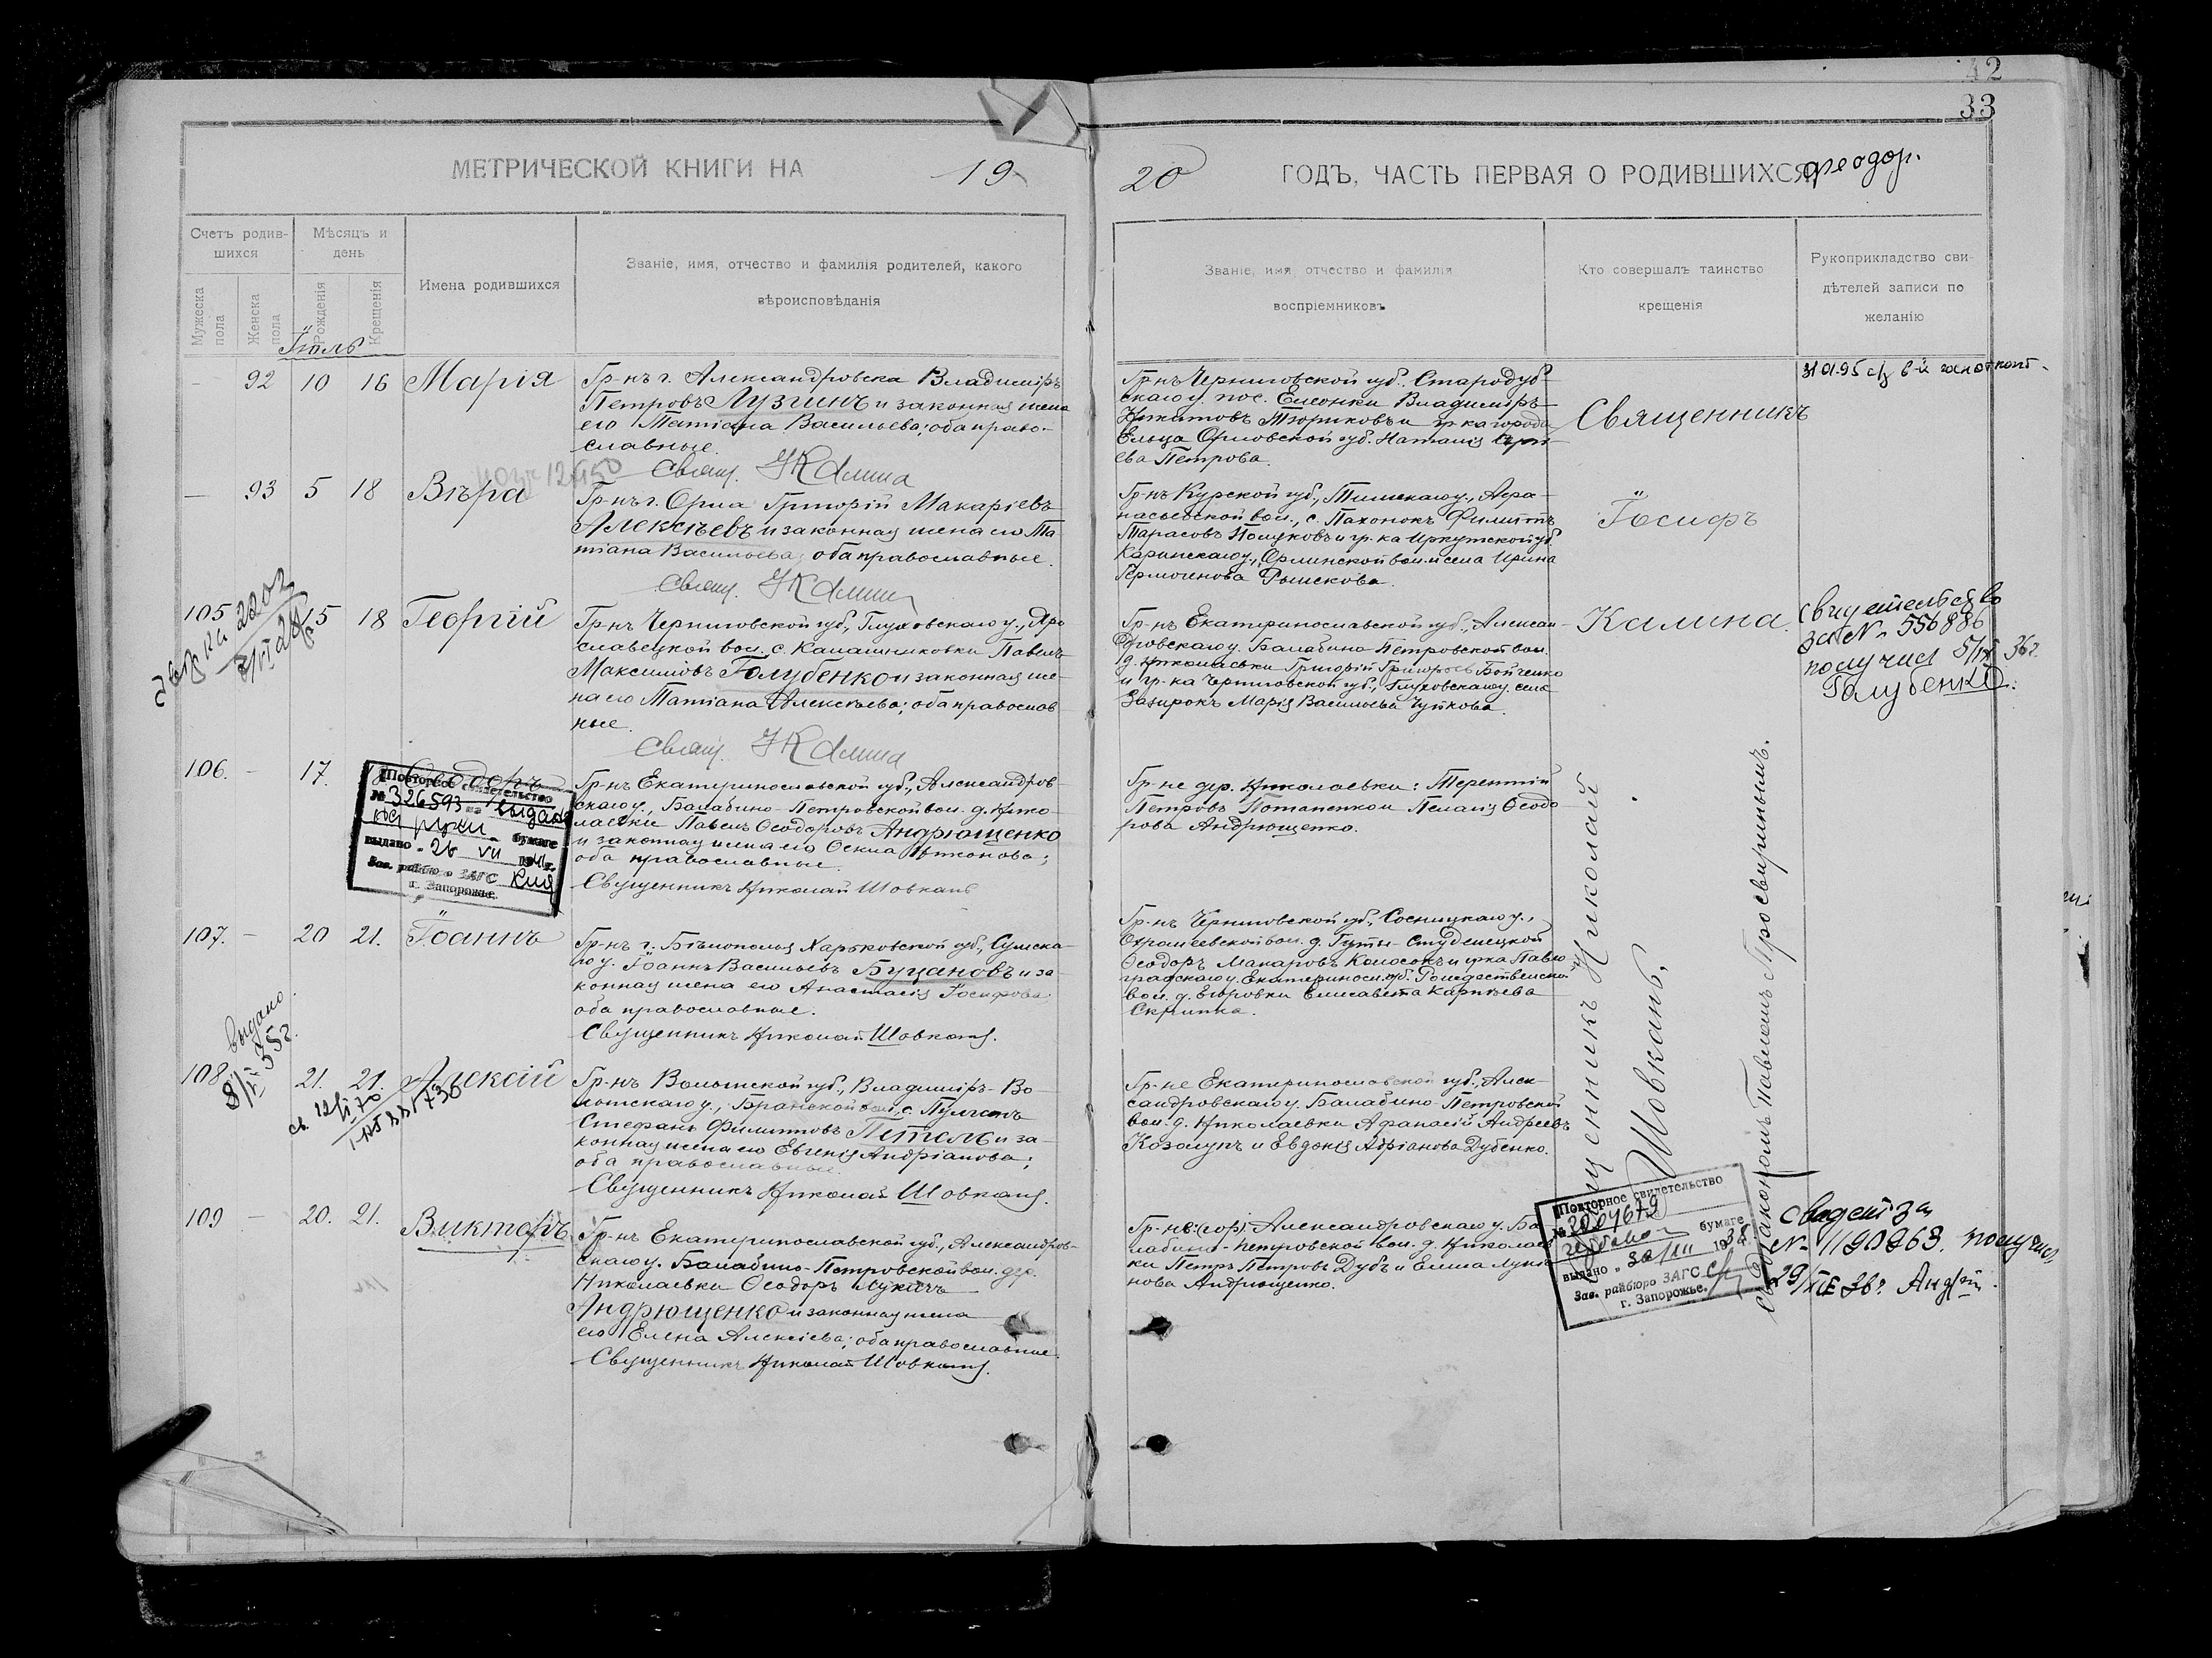 42
33
МЕТРИЧЕСКОЙ КНИГИ НА 19
20 ГОДЪ, ЧАСТЬ ПЕРВАЯ О РОДИВШИХСЯ
Феодор.
Счетъ родив-
шихся
Мужеска
пола
Женска
пола
Мѣсяцъ и
день
Рожденія
Крещенія
Имена родившихся
Званіе, имя, отчество и фамилія родителей, какого
вѣроисповѣданія
Званіе, имя, отчество и фамилія
воспріемниковъ
Кто совершалъ таинство
крещенія
Рукоприкладство сви-
дѣтелей записи по
желанію
Іюль
92 10 16 Марія
Гр-нъ г. Александровска Владиміръ
Петровъ Лузгинъ и законная жена
его Татіана Васильева; оба право-
славные.
Свящ. І Калина
Гр-нъ Черниговской губ., Стародуб-
скаго у. пос. Елионки Владиміръ
Никитовъ Тюриковъ и гр-ка города
Ельца Орловской губ. Наталія
ева Петрова.
Священникъ
Іосифъ
Калина.
93 5 18 Вѣра
Гр-нъ г. Орла Григорій Макаріевъ
Алексѣевъ и законная жена его Та
тіана Васильева; оба православные.
Свящ. І Калина
Гр-нъ Курской губ., Тимскаго у., Афа-
насьевской вол., с. Пахонокъ Филиппъ
Тарасовъ Полуковъ и гр-ка Иркутской губ
Орлинской вол. и села Ирина
Гермогенова
105 15 18 Георгій
Гр-нъ Черниговской губ., Глуховскаго у., Яро
славецкой вол. с. Калашниковки Павелъ
Максимовъ Голубенко и законная же-
на его Татіана Алексѣева; оба православ
ные.
Свящ. І Калина
Гр-нъ Екатеринославской губ., Алексан-
дровскаго у. Балабино-Петровской вол.
д. Николаевки Григорій Григорьевъ Бойченко
и гр-ка Черниговской губ., Глуховскаго у. села
Зазирокъ Марія Васильева Чуйкова.
Свидетельство
за № 556886
получил 5/ 36г.
Голубенко
106. 17. Ѳеодоръ
Повторное свидетельство
№ 326593 на
выдано 26 VII
бумаге
Зав. райбюро ЗАГС
г. Запорожье.
Гр-нъ Екатеринославской губ., Александров
скаго у., Балабино-Петровской вол. д. Нико-
лаевки Павелъ Ѳеодоровъ Андрющенко
и законная жена его Ѳекла Никонова;
оба православные.
Священникъ Николай Шовкань
Гр-не дер. Николаевки: Терентій
Петровъ Потапенко и Пелагія Ѳеодо
рова Андрющенко.
107. 20 21. Іоаннъ
Гр-нъ г. Бѣлополья Харьковской губ., Сумска-
го у. Іоаннъ Васильевъ Буцановъ и за-
конная жена его Анастасія Іосифова;
оба православные.
Священникъ Николай Шовкань.
Гр-нъ Черниговской губ., Сосницкаго у.,
вол. д. Гуты-Студенецкой
Ѳеодоръ Макаровъ Колосокъ и гр-ка Павло
градскаго у. Екатериносл. губ. Рождественской
вол. д. Егоровки Елисавета Карпѣева
Скрипка.
выдано
108 21. 21. Алексій
Гр-нъ Волынской губ., Владиміръ-Во-
лынскаго у.,
Стефанъ Филипповъ и за-
конная жена его Евгенія Андріанова;
оба православные.
Священникъ Николай Шовкань.
Гр-не Екатеринославской губ., Алек-
сандровскаго у. Балабино-Петровской
вол. д. Николаевки Афанасій Андреевъ
Козолупъ и Евдокія Адріанова Дубенко.
109 20. 21. Викторъ
Гр-нъ Екатеринославской губ., Александров-
скаго у. Балабино-Петровской вол. дер.
Николаевки Ѳеодоръ Лукичъ
Андрющенко и законная жена
его Елена Алексіева; оба православные.
Священникъ Николай Шовкань.
Александровскаго у. Ба
лабино-Петровской вол. д. Николаев
ки Петръ Петровъ Дубъ и Елена Лукья
нова Андрющенко.
Священникъ Николай
Шовкань.
Повторное свидетельство
бумаге
выдано 30/III 1938
Зав. райбюро ЗАГС
г. Запорожье.
Свидет за
№ 1190963. получил
29/